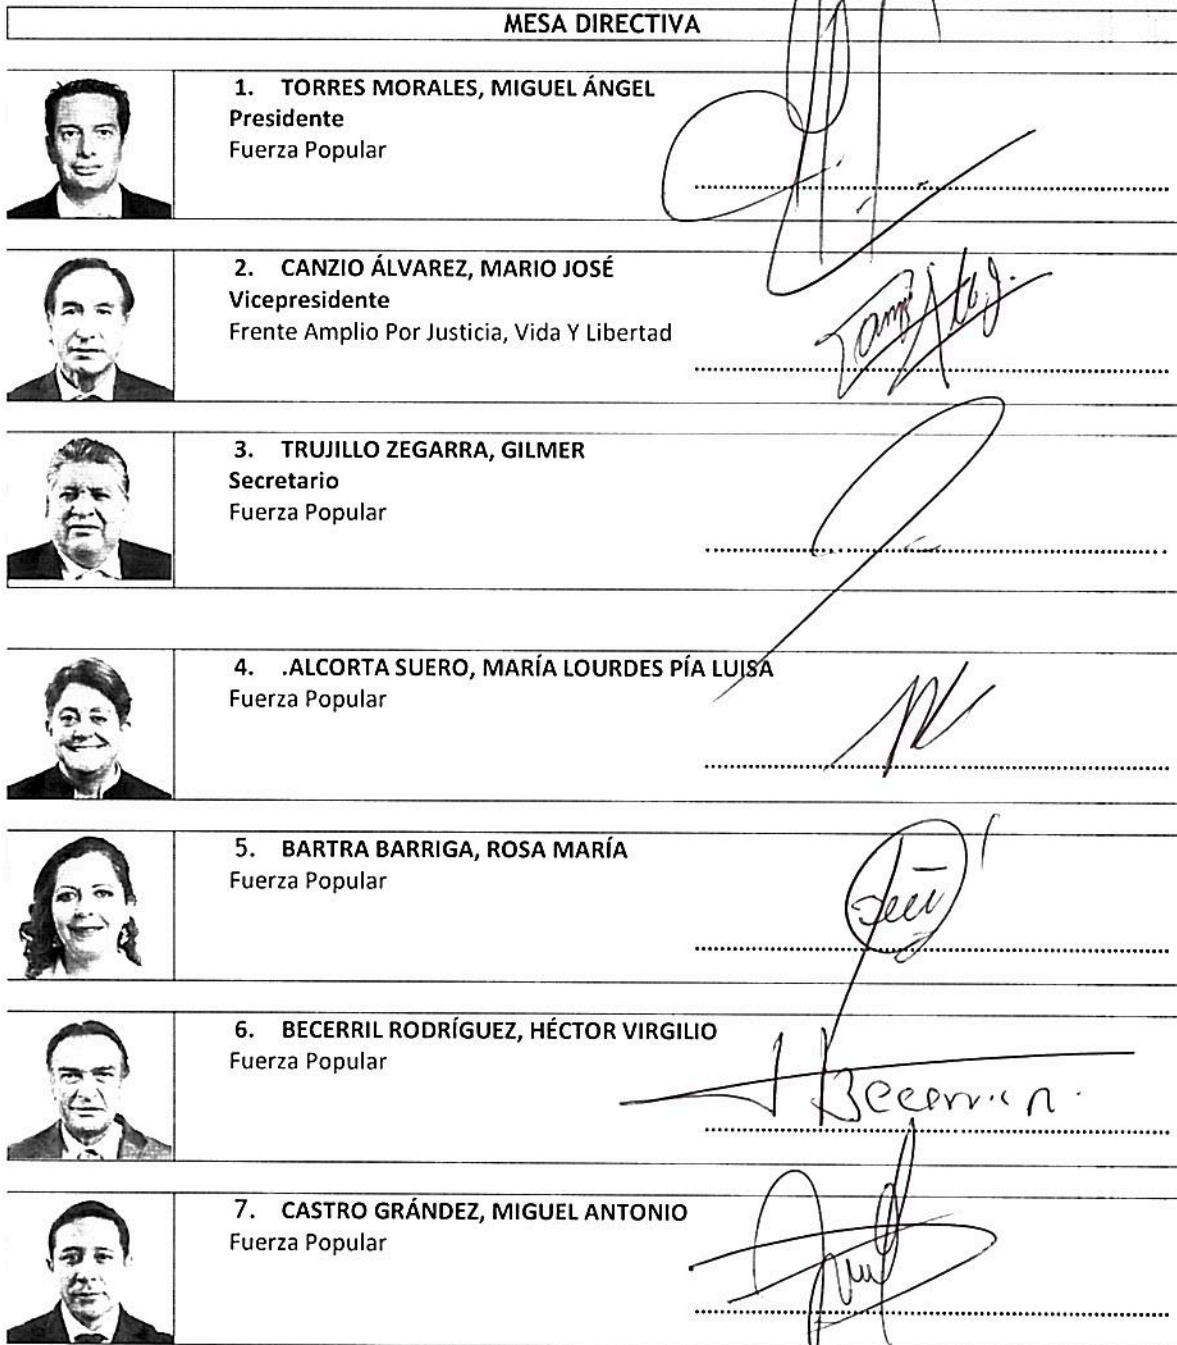 MESA DIRECTIVA
1. TORRES MORALES, MIGUEL ÁNGEL
Presidente
Fuerza Popular
2. CANZIO ÁLVAREZ, MARIO JOSÉ
Vicepresidente
Frente Amplio Por Justicia, Vida Y Libertad
3. TRUJILLO ZEGARRA, GILMER
Secretario
Fuerza Popular
4. .ALCORTA SUERO, MARÍA LOURDES PÍA LUISA
Fuerza Popular
5. BARTRA BARRIGA, ROSA MARÍA
Fuerza Popular
6. BECERRIL RODRÍGUEZ, HÉCTOR VIRGILIO
Fuerza Popular
7. CASTRO GRÁNDEZ, MIGUEL ANTONIO
Fuerza Popular